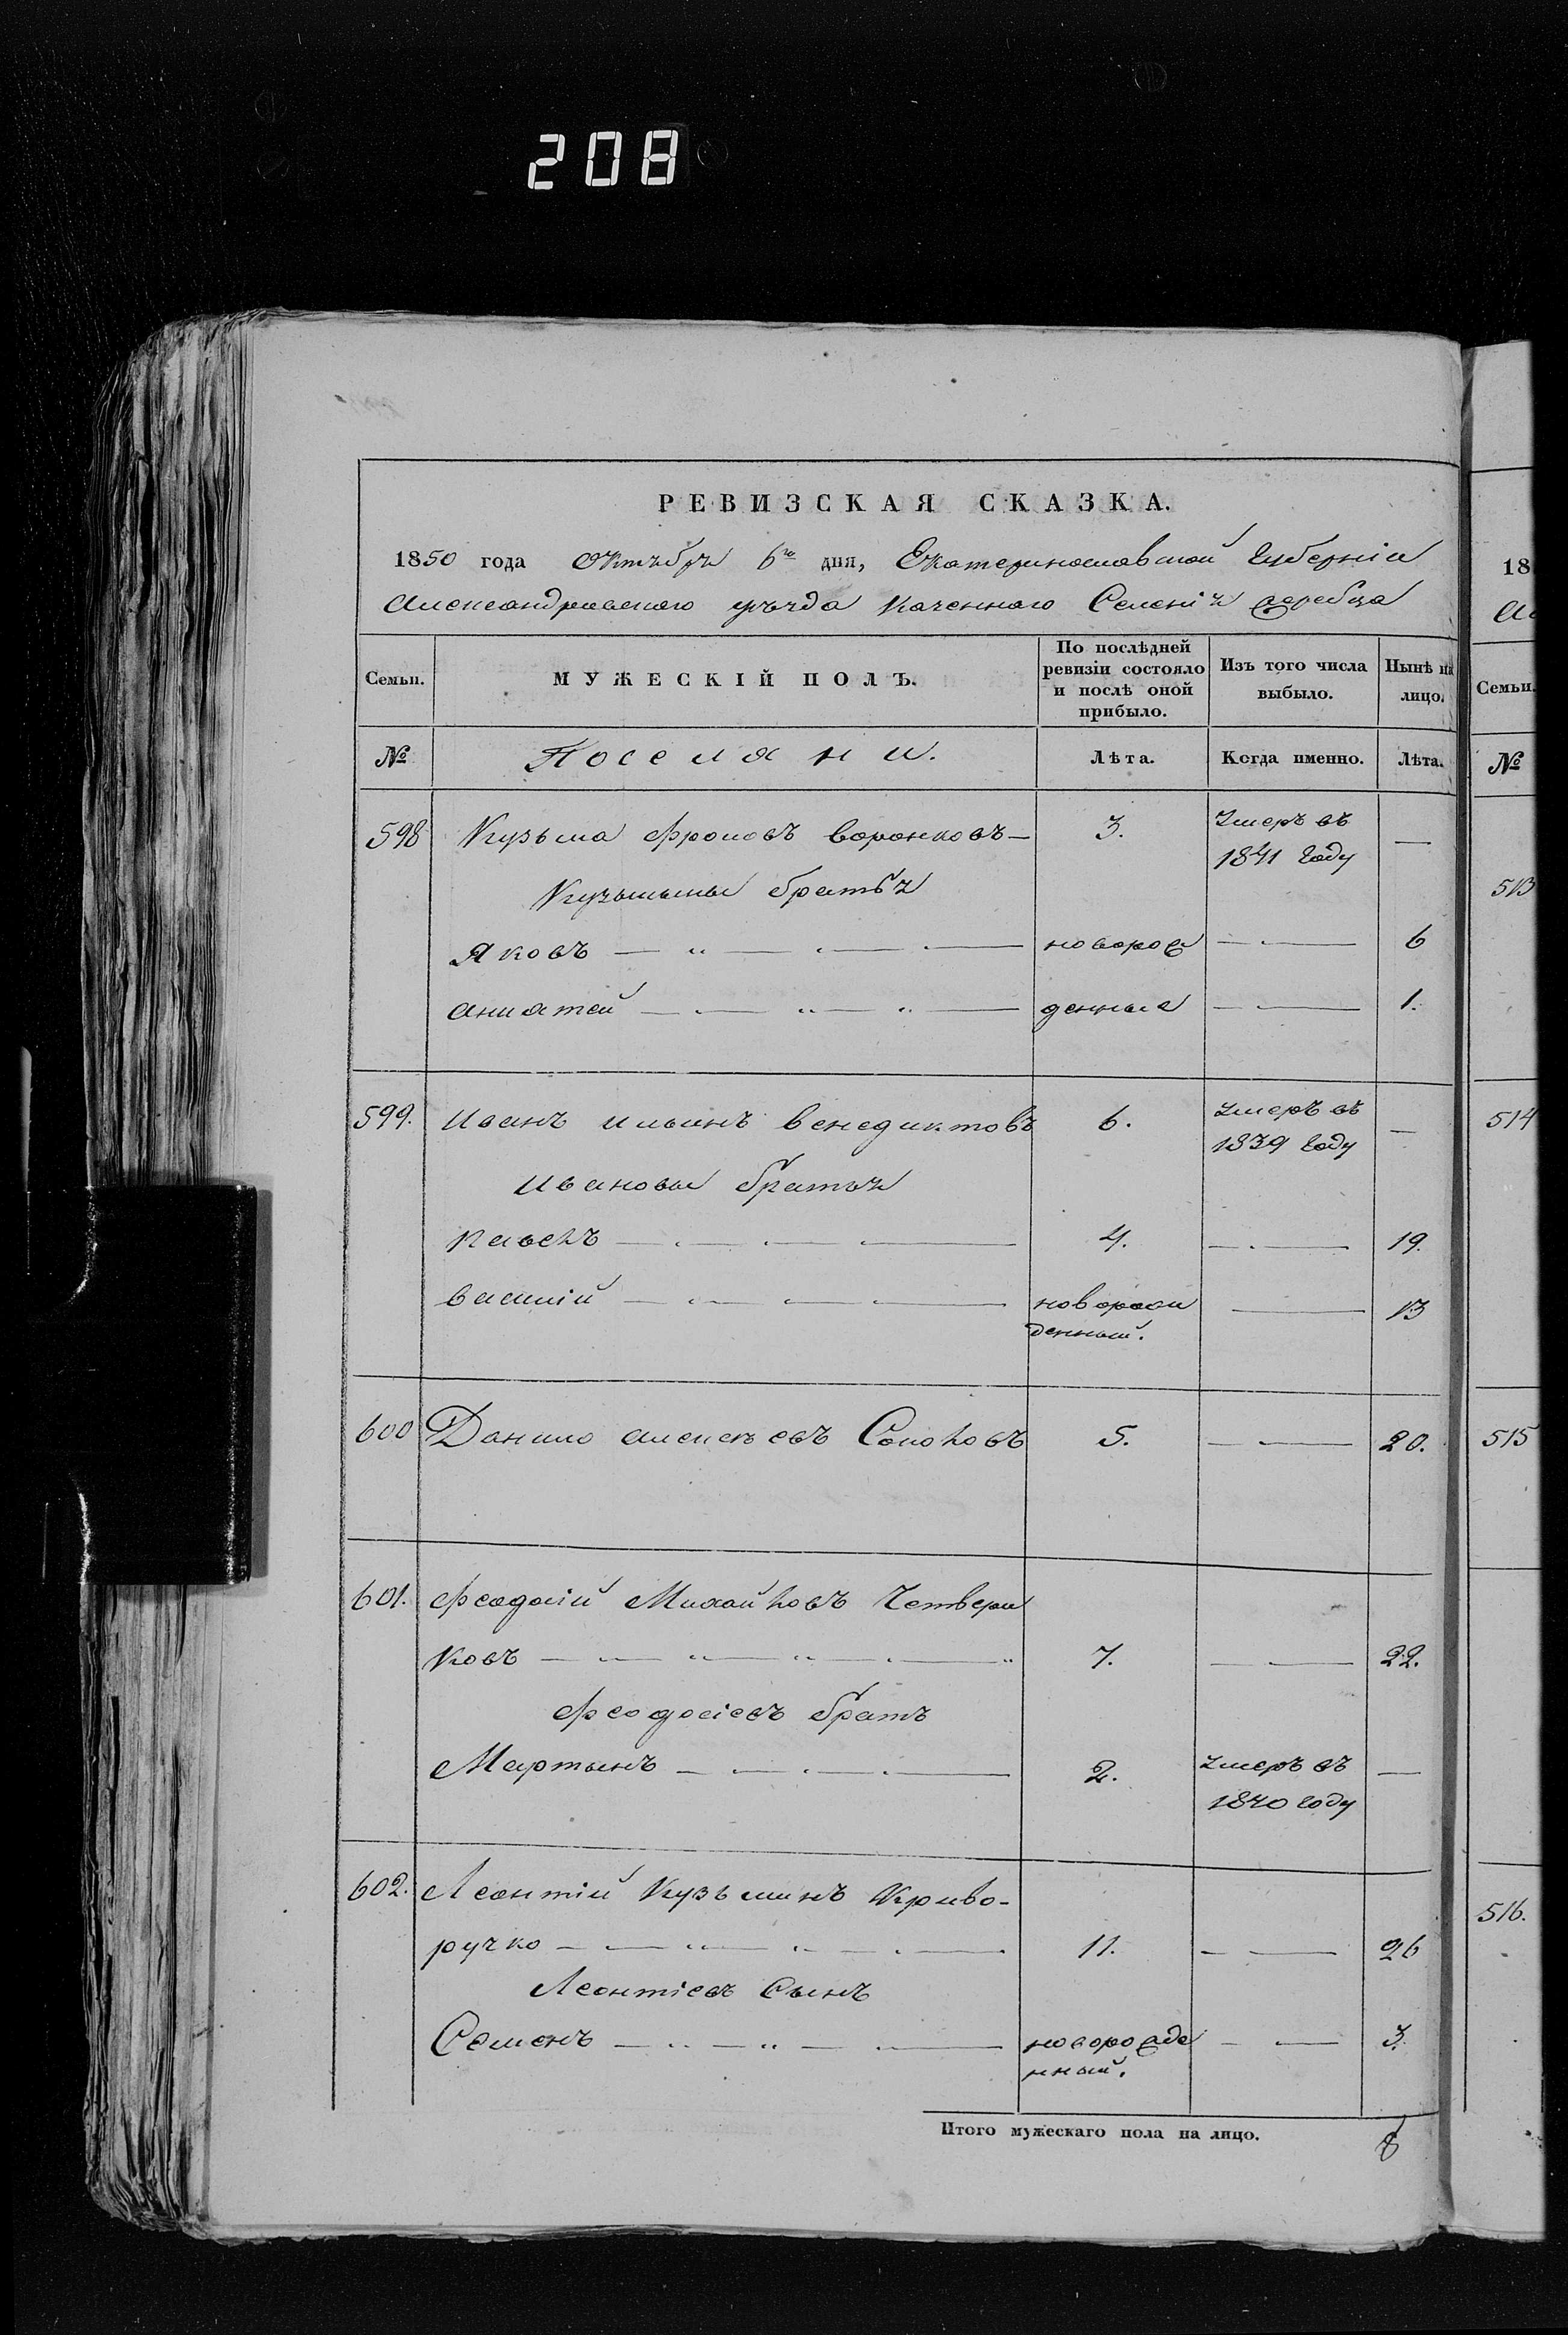 208
РЕВИЗСКАЯ СКАЗКА.
1850 года Октября 6го дня, Екатеринославской Губерніи
Александровского уѣзда Казенного Селенія Жеребца
Семьи.
МУЖЕСКІЙ ПОЛЪ.
По послѣдней ревизіи состояло и послѣ оной прибыло.
Изъ того числа выбыло.
Нынѣ на лицо.
№
Поселяни.
Лѣта.
Когда именно.
Лѣта.
598 Кузьма Фроловъ Воронковъ — 3. Умеръ въ 1841 Году —
Кузьмины братья
Яковъ — новорож — 6
Ипатей — денные — 1.
599. Иванъ Ильинъ Венедиктовъ 6. Умеръ въ 1839 Году —
Ивановы братья
Павелъ — 4. — 19.
Василій — новорож — 13
денный.
600 Данило Алексѣевъ Соколовъ 5. — 20.
601. Феодосій Михайловъ Четвери
ковъ — 7. — 22.
Феодосіевъ братъ
Мартынъ — 2. Умеръ въ 1840 Году —
602. Леонтій Кузьминъ Криво-
ручко — 11. — 26
Леонтіевъ Сынъ
Семенъ — новорожде — 3.
нный.
Итого мужескаго пола на лицо. 8
18
Ал
Семьи.
№
513
514
515
516.